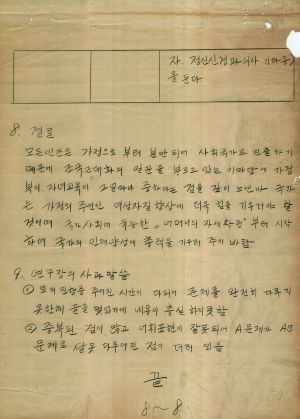 자. 정신신경과의사 기타 등)
를 둔다.
8. 결론
모든인간은 가정으로 부터 출발되여 사회국가로 진출하기
때문에 조국근대화의 일꾼을 부르고 있는 이마당에 가정
부터 자녀교육이 그얼마나 중하다는 점을 깊이 느낀바 국가
는 가정의 주인인 여성자질향상에 더욱 힘을 기우려야 할
것이며 국가사회에 유능한 "어머니의 자세확립" 부터 시작
하여 국가의 인재양성에 총력을 기우려 주기 바람
9. 연구장의 사과말씀
① 토의진행중 주어진 시간이 다되어 문제를 완전히 다루지
못한채 끝을 맺었기에 내용이 충실하지못함
② 중복된 점이 많고 어휘표현이 잘못되어 A문제가 AB
문제로 잘못 다루어진 점이 더러 있음
끝
8~8.